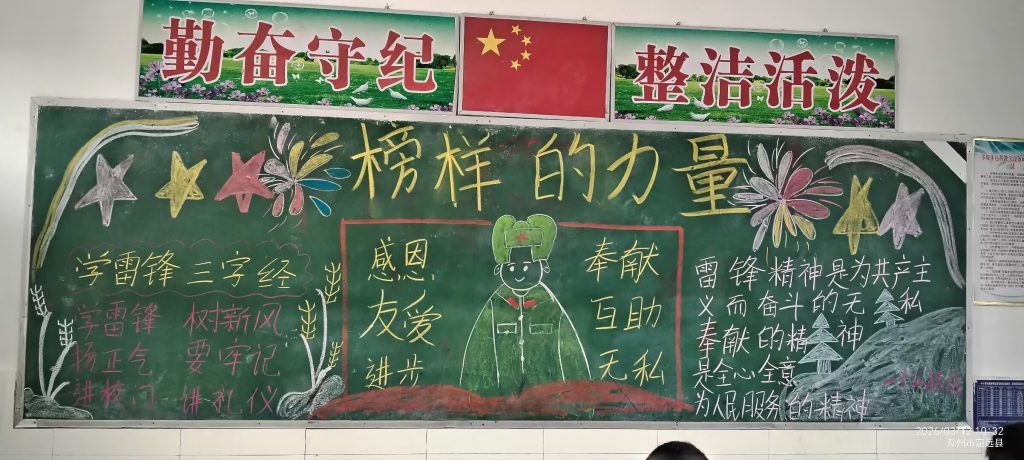 勤奋守纪
整洁活泼
榜样的力量
学雷锋三字经
学雷锋 树新风
扬正气 要牢记
进校门 讲礼仪
感恩
友爱
进步
奉献
互助
无私
雷锋精神是为共产主
义而奋斗的无私
奉献的精神
是全心全意
为人民服务的精神
2026/03/12 10:32
滁州市定远县